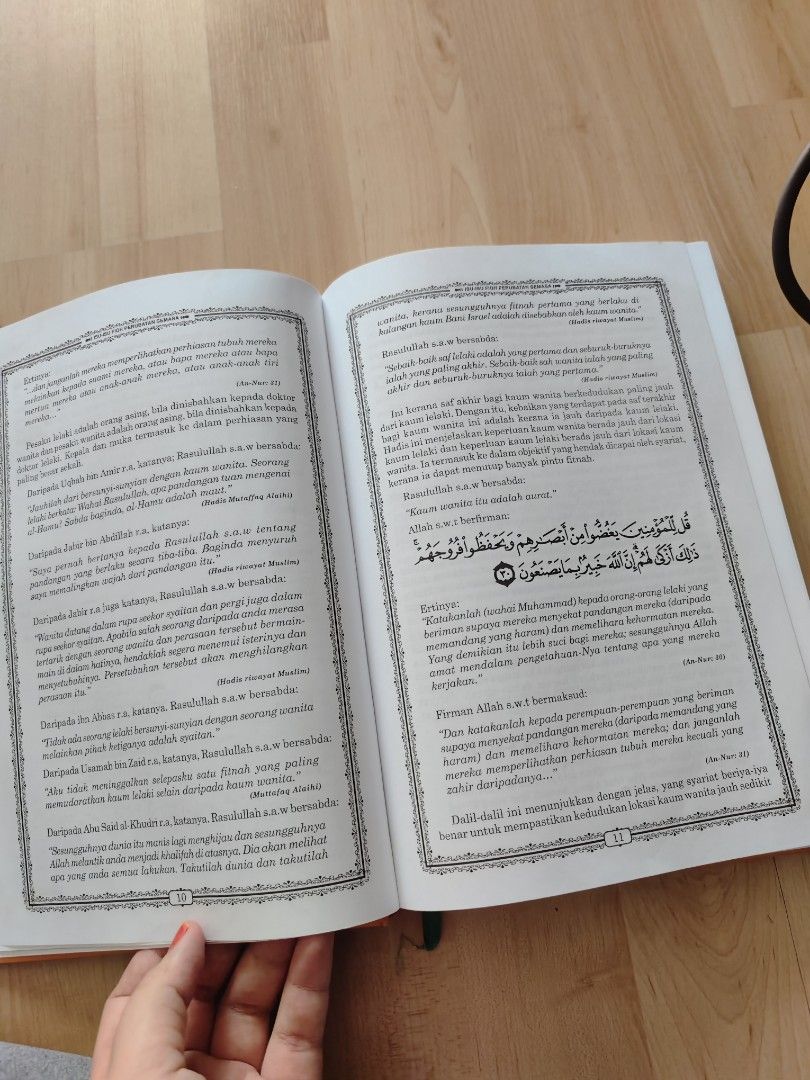 ISU-ISU FIQH PERUBATAN SEMASA
Ertinya:
"...dan janganlah mereka memperlihatkan perhiasan tubuh mereka
melainkan kepada suami mereka, atau bapa mereka atau bapa
mertua mereka atau anak-anak mereka, atau anak-anak tiri
mereka..."
(An-Nur: 31)
Pesakit lelaki adalah orang asing, bila dinisbahkan kepada doktor
wanita dan pesakit wanita adalah orang asing, bila dinisbahkan kepada
doktor lelaki. Kepala dan muka termasuk ke dalam perhiasan yang
paling besar sekali.
Daripada Uqbah bin Amir r.a, katanya; Rasulullah s.a.w bersabda:
"Jauhilah dari bersunyi-sunyian dengan kaum wanita. Seorang
lelaki berkata: Wahai Rasulullah, apa pandangan tuan mengenai
al-Hamu? Sabda baginda, al-Hamu adalah maut."
(Hadis Muttafaq Alaihi)
Daripada Jabir bin Abdillah r.a, katanya:
"Saya pernah bertanya kepada Rasulullah s.a.w tentang
pandangan yang berlaku secara tiba-tiba. Baginda menyuruh
saya memalingkan wajah dari pandangan itu."
(Hadis riwayat Muslim)
Daripada Jabir r.a juga katanya, Rasulullah s.a.w bersabda:
"Wanita datang dalam rupa seekor syaitan dan pergi juga dalam
rupa seekor syaitan. Apabila salah seorang daripada anda merasa
tertarik dengan seorang wanita dan perasaan tersebut bermain-
main di dalam hatinya, hendaklah segera menemui isterinya dan
menyetubuhinya. Persetubuhan tersebut akan menghilangkan
perasaan itu."
(Hadis riwayat Muslim)
Daripada ibn Abbas r.a, katanya. Rasulullah s.a.w bersabda:
"Tidak ada seorang lelaki bersunyi-sunyian dengan seorang wanita
melainkan pihak ketiganya adalah syaitan."
Daripada Usamah bin Zaid r.a, katanya, Rasulullah s.a.w bersabda:
"Aku tidak meninggalkan selepasku satu fitnah yang paling
memudaratkan kaum lelaki selain daripada kaum wanita."
(Muttafaq Alaihi)
Daripada Abu Said al-Khudri r.a, katanya. Rasulullah s.a.w bersabda:
"Sesungguhnya dunia itu manis lagi menghijau dan sesungguhnya
Allah melantik anda menjadi khalifah di atasnya. Dia akan melihat
apa yang anda semua lakukan. Takutilah dunia dan takutilah
10
ISU-ISU FIQH PERUBATAN SEMASA
wanita, kerana sesungguhnya fitnah pertama yang berlaku di
kalangan kaum Bani Israel adalah disebabkan oleh kaum wanita."
(Hadis riwayat Muslim)
Rasulullah s.a.w bersabda:
"Sebaik-baik saf lelaki adalah yang pertama dan seburuk-buruknya
ialah yang paling akhir. Sebaik-baik saf wanita ialah yang paling
akhir dan seburuk-buruknya ialah yang pertama."
(Hadis riwayat Muslim)
Ini kerana saf akhir bagi kaum wanita berkedudukan paling jauh
dari kaum lelaki. Dengan itu, kebaikan yang terdapat pada saf terakhir
bagi kaum wanita ini adalah kerana ia jauh daripada kaum lelaki.
Hadis ini menjelaskan keperluan kaum wanita berada jauh dari lokasi
kaum lelaki dan keperluan kaum lelaki berada jauh dari lokasi kaum
wanita. Ia termasuk ke dalam objektif yang hendak dicapai oleh syariat,
kerana ia dapat menutup banyak pintu fitnah.
Rasulullah s.a.w bersabda:
"Kaum wanita itu adalah aurat."
Allah s.w.t berfirman:
قُل لِّلْمُؤْمِنِينَ يَغُضُّوا۟ مِنْ أَبْصَـٰرِهِمْ وَيَحْفَظُوا۟ فُرُوجَهُمْ ۚ
ذَٰلِكَ أَزْكَىٰ لَهُمْ ۗ إِنَّ ٱللَّهَ خَبِيرٌۢ بِمَا يَصْنَعُونَ ﴿٣٠﴾
Ertinya:
"Katakanlah (wahai Muhammad) kepada orang-orang lelaki yang
beriman supaya mereka menyekat pandangan mereka (daripada
memandang yang haram) dan memelihara kehormatan mereka.
Yang demikian itu lebih suci bagi mereka; sesungguhnya Allah
amat mendalam pengetahuan-Nya tentang apa yang mereka
kerjakan."
(An-Nur: 30)
Firman Allah s.w.t bermaksud:
"Dan katakanlah kepada perempuan-perempuan yang beriman
supaya menyekat pandangan mereka (daripada memandang yang
haram) dan memelihara kehormatan mereka; dan janganlah
mereka memperlihatkan perhiasan tubuh mereka kecuali yang
zahir daripadanya..."
(An-Nur: 31)
Dalil-dalil ini menunjukkan dengan jelas, yang syariat beriya-iya
benar untuk mempastikan kedudukan lokasi kaum wanita jauh sedikit
11